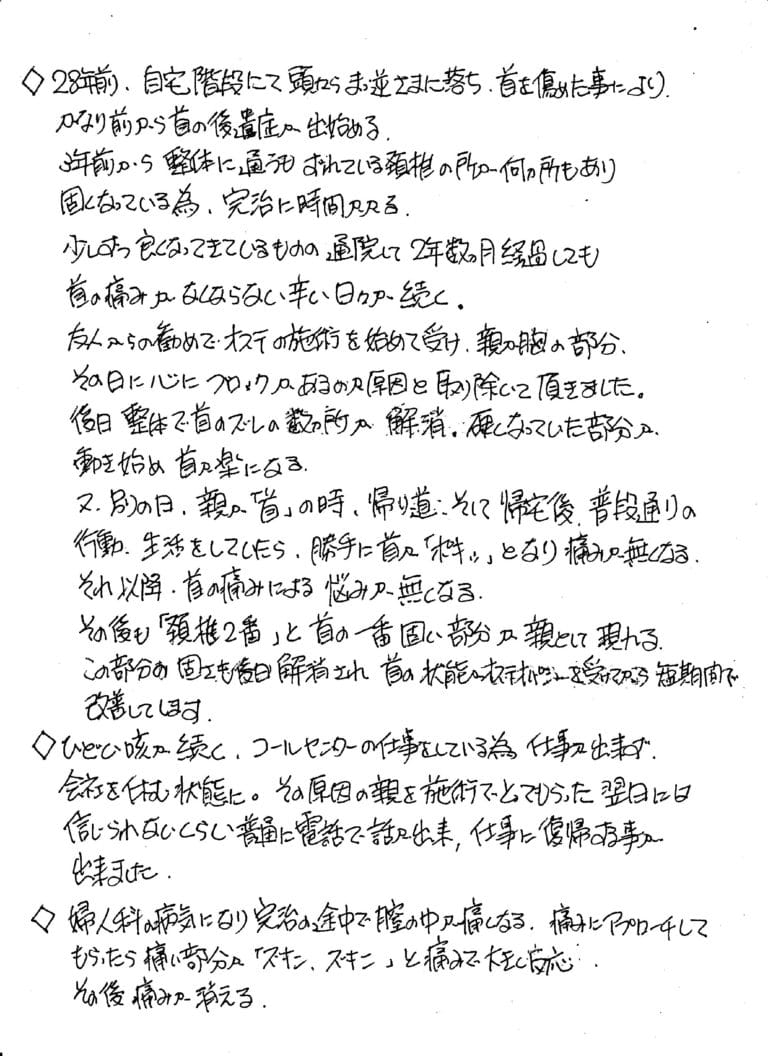 ◇ 28年前、自宅階段にて頭からまっ逆さまに落ち、首を傷めた事により、
かなり前から首の後遺症が出始める。
3年前から整体に通うもずれている頚椎の所が何ヵ所もあり
固くなっている為、完治に時間がかる。
少しずつ良くなってきているものの通院して2年数ヶ月経過しても
首の痛みがなくならない辛い日々が続く。
友人からの勧めでオステの施術を始めて受け、親が胸の部分、
その日に心にブロックがあるのが原因と取り除いて頂きました。
後日整体で首のズレの数ヵ所が解消。硬くなっていた部分が
動き始め首が楽になる。
又、別の日、親が「首」の時、帰り道、そして帰宅後、普段通りの
行動、生活をしてしたら、勝手に首が「ポキッ」となり痛みが無くなる。
それ以降、首の痛みによる悩みが無くなる。
その後も「頚椎2番」と首の一番固い部分が親として現れる。
この部分の固さも後日解消され首の状態がオステオパシーを受けてから短期間で
改善してします。
◇ ひどい咳が続く、コールセンターの仕事をしている為、仕事が出来ず、
会社を休む状態に。その原因の親を施術でとってもらった翌日には
信じられないくらい普通に電話で話が出来、仕事に復帰する事が
出来ました。
◇ 婦人科の病気になり完治の途中で膣の中が痛くなる。痛みにアプローチして
もらったら痛い部分が「ズキン、ズキン」と痛みで大きく反応、
その後痛みが消える。